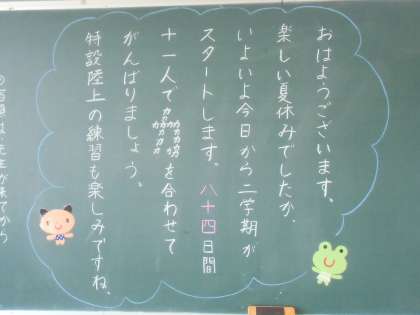 おはようございます。
楽しい夏休みでしたか。
いよいよ今日から二学期が
スタートします。八十四日間
十一人で力力力力力力力力力力力を合わせて
がんばりましょう。
特設陸上の練習も楽しみですね。
は、先生が来てから